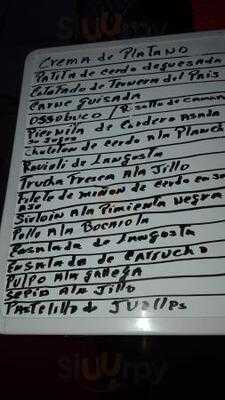 Slurpy
Crema de Platano
Patita de cerdo deguesada
Estofado de Ternera del País
Carne guisada
Ossobuco / R salsa de camaro
Piernila de Cordero asada
su Jugo
Chuleton de cerdo a la Planch
Ravioli de Langosta
Trucha Fresca a la Jillo
Filete de miñon de cerdo en su
Sirloin a la Pimienta negra
Pollo a la
Ensalada de Langosta
Ensalada de Carrucho
Pulpo a la gallega
Sepia a la Jillo
Pastelillo de
Slurpy